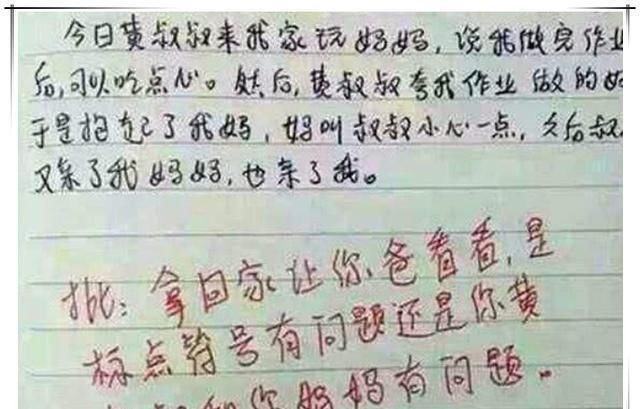 今日黄叔叔来我家玩妈妈，说我做完作业
后，可以吃点心。然后，黄叔叔夸我作业做的好
于是抱起了我妈，妈叫叔叔小心一点，之后叔
又亲了我妈妈，也亲了我。
批：拿回家让你爸看看，是
标点符号有问题还是你黄
和你妈妈有问题。